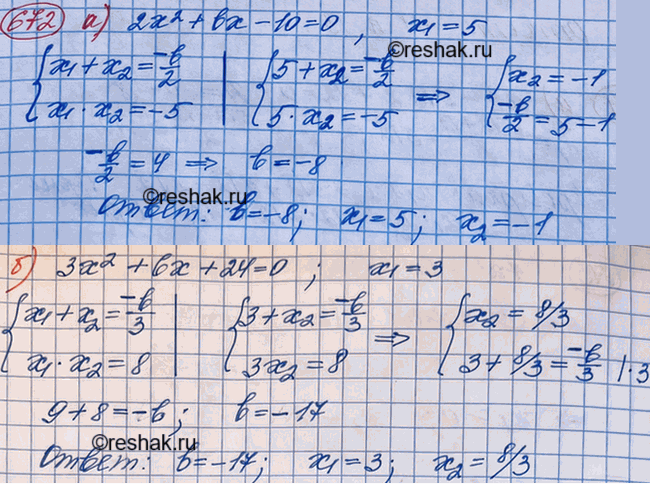 672 а) 2x² + bx - 10 = 0, x₁ = 5
©reshak.ru
{ x₁ + x₂ = -b/2 | { 5 + x₂ = -b/2 ⇒ { x₂ = -1
{ x₁ · x₂ = -5 | { 5 · x₂ = -5 ⇒ { -b/2 = 5 - 1
-b/2 = 4 ⇒ b = -8
©reshak.ru
Ответ: b = -8; x₁ = 5; x₂ = -1
б) 3x² + bx + 24 = 0; x₁ = 3
{ x₁ + x₂ = -b/3 | { 3 + x₂ = -b/3 ⇒ { x₂ = 8/3
{ x₁ · x₂ = 8 | { 3x₂ = 8 ⇒ { 3 + 8/3 = -b/3 | · 3
9 + 8 = -b; b = -17
©reshak.ru
Ответ: b = -17; x₁ = 3; x₂ = 8/3